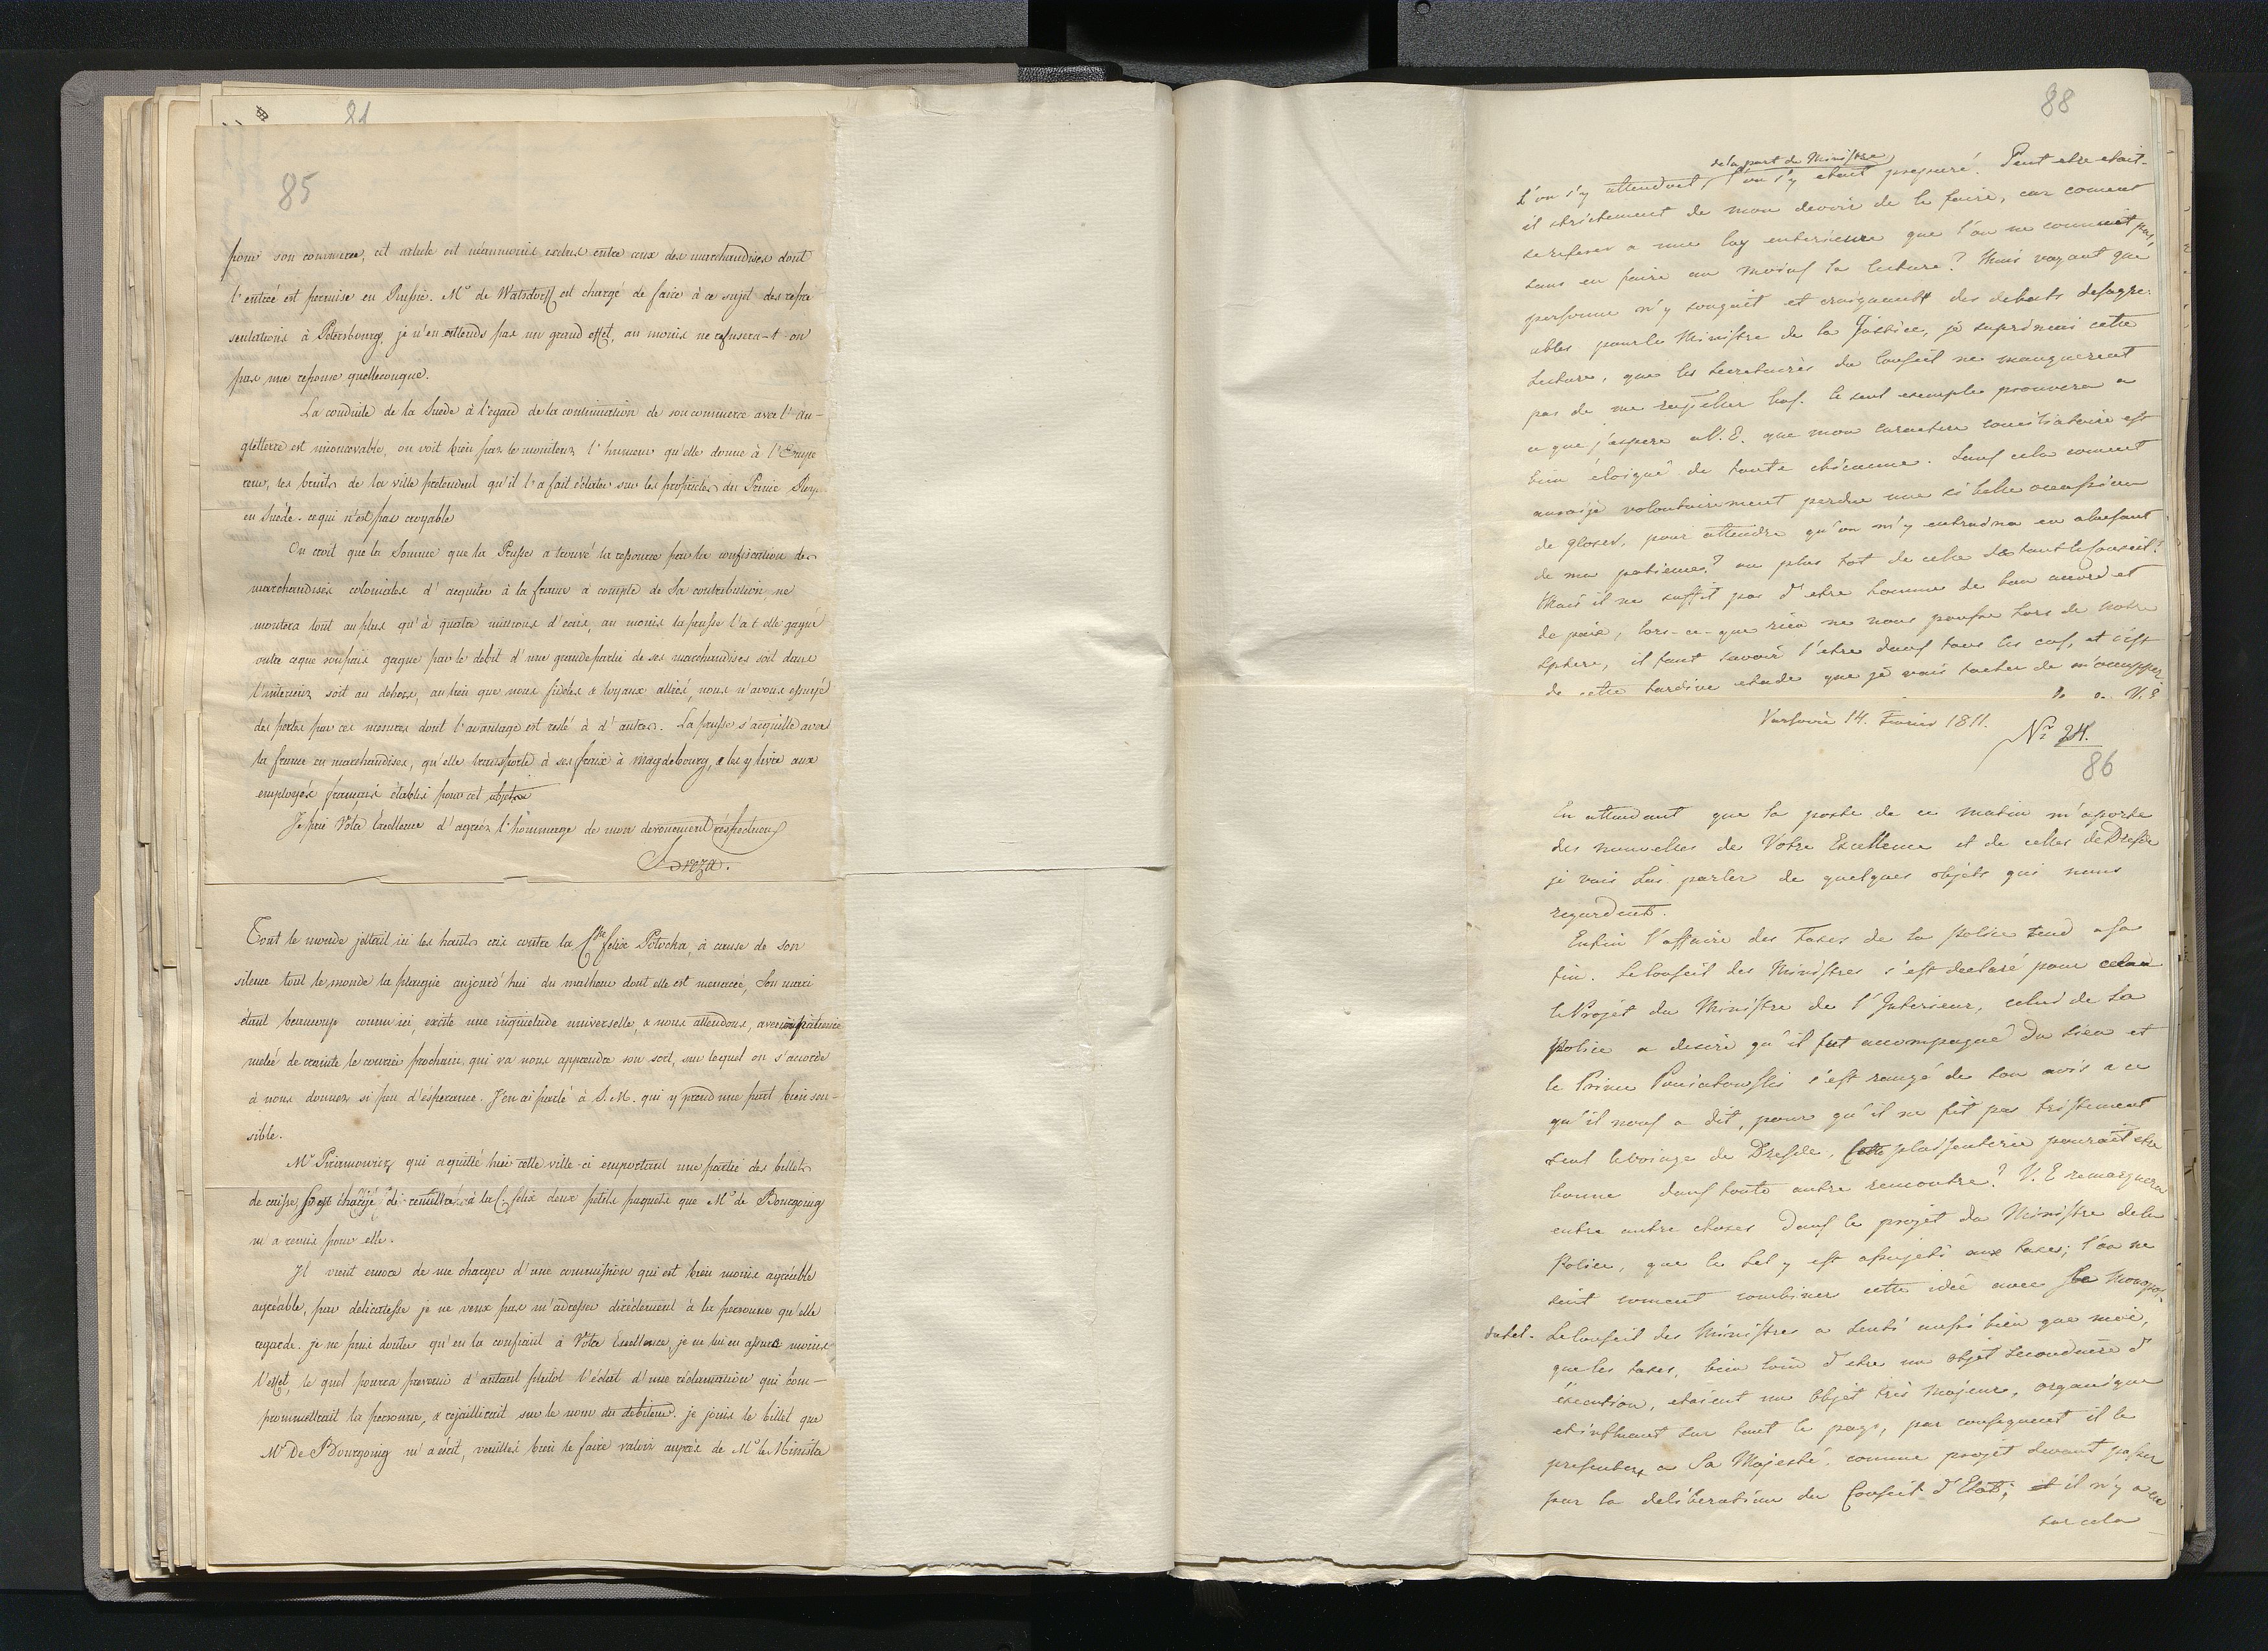 81
85
pour son commerce, cet article est néanmoins exclus entre ceux des marchandises dont
l'entrée est permise en Russie. Mr de Watzdorff est chargé de faire à ce sujet des repre
sentations à Petersbourg, je n'en attends pas un grand effet, au moins ne refusera-t-on
pas une reponse quelleconque.
La conduite de la Suede à l'egard de la continuation de son commerce avec l'An-
gletterre est inconcevable, on voit bien par le moniteur l'humeur qu'elle donne à l'Empe
reur, les bruits de la ville pretendent qu'il l'a fait éclater sur les propriétés du Prince Roy.
en Suède. ce qui n'est pas croyable
On croit que la Somme que la Prusse a trouvé la ressource par la confiscation des
marchandises coloniales d'acquiter à la france à compte de Sa contribution, ne
montera tout au plus qu'à quatre millions d'ecus, au moins la prusse l'a t elle gagné
outre ce que son pais gagne par le debit d'une grande partie de ses marchandises soit dans
l'interieur soit au dehors, au lieu que nous fideles & loyaux alliés, nous n'avons essuyé
des pertes par ces mesures dont l'avantage est resté à d'autres. La prusse s'acquitte avec
la france en marchandises, qu'elle transporte à ses fraix à Magdebourg, & les y livre aux
employés français établis pour cet objet.
Je prie Votre Excellence d'agréer l'hommage de mon devouement respectueux
Breza.
Tout le monde jettait ici les hauts cris contre la Csse felix Potocka, à cause de son
silence tout le monde la plaigne aujourd'hui du malheur dont elle est menacée, Son mari
étant beaucoup connu ici, excite une inquietude universelle, & nous attendons, avec impatience
melée de crainte le courrier prochain, qui va nous apprendre son sort, sur lequel on s'accorde
à nous donner si peu d'éspérance. J'en ai parlé à S. M. qui y prend une part bien sen-
sible.
Mr qui a quitté hier cette ville-ci emportant une partie des billets
de caisse, s'est chargé de remettre à la C. felix deux petits paquets que Mr de Bourgoing
m'a remis pour elle.
Il vient encore de me charger d'une commission qui est bien moins agréable
agréable, par delicatesse je ne veux pas m'adresser directement à la personne qu'elle
regarde. je ne puis douter qu'en la confiant à Votre Excellence, je ne lui en assure moins
l'effet, le quel pourra prevenir d'autant plutôt l'éclat d'une réclamation qui com-
promettrait la personne, & rejaillirait sur le nom du debiteur. je joins le billet que
Mr De Bourgoing m'a écrit, veuillés bien le faire valoir auprès de Mr le Ministre
88
de la part du Ministre
L'on s'y attendoit, l'on s'y etait preparé. Peut etre etait-
il strictement de mon devoir de le faire, car coment
se referer a une loy enterieure que l'on ne connait pas,
sans en faire au moins la lecture? Mais voyant que
personne n'y songeait et craignant des debats desagre-
ables pour le Ministre de la Justice, je suprimai cette
lecture, que les Secretaires du Conseil ne manquerent
pas de me bas. Ce seul exemple prouvera a
ce que j'espere a V. E. que mon caractere conciliatoire est
bien éloigné de toute chicanne. Sans cela coment
aurai-je volontairement perdu une si belle occassion
de gloser, pour attendre qu'on m'y entraina en abusant
de ma patience? ou plus tot de celle de tout le Conseil!
Mais il ne suffit pas d'etre homme de bon accord et
de paix, lors-ce-que rien ne nous pousse hors de notre
sphere, il faut savoir l'etre dans tous les cas, et c'est
de cette tardive etude que je vais tacher de m'occupper.
d. V. E
Varsovie 14. Fevrier 1811.
Nr 24.
86
En attendant que la poste de ce matin m'aporte
des nouvelles de Votre Excellence et de celles de Dresde
je vais Lui parler de quelques objets qui nous
regardent.
Enfin l'affaire des Taxes de la police tend a sa
fin. Le Conseil des Ministres s'est declaré pour
le Projet du Ministre de l'Interieur, celui de la
Police a desiré qu'il fut accompagné du sien et
le Prince Poniatowski s'est rangé de son avis a ce
qu'il nous a dit, pour qu'il ne fit pas tristement
seul le voiage de Dresde. Cette plaisenterie pourait etre
bonne dans toute autre rencontre? V. E remarquera
entre autre choses dans le projet du Ministre de la
Police, que le Sel y est assujeti aux taxes; l'on ne
sait coment combiner cette idée avec le Monopol
du sel. Le Conseil des Ministres a senti aussi bien que moi,
que les taxes, bien loin d'etre un objet secondaire d'
éxecution, etaient un objet très majeur, organique
et influant sur tout le pays, par consequent il le
presentera a Sa Majesté, comme projet devant passer
par la deliberation du Conseil d'Etat; et il n'y a eu
sur cela